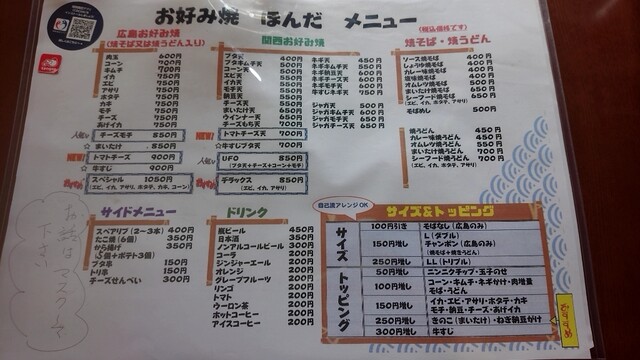 お好み焼 ほんだ メニュー
(税込価格です)
広島お好み焼
(焼そば又は焼うどん入り)
肉玉 600円
コーン 700円
キムチ 700円
イカ 750円
エビ 750円
アサリ 750円
ホタテ 750円
カキ 750円
モチ 750円
チーズ 750円
あげイカ 750円
人気 チーズモチ 850円
☆ まいたけ 850円
NEW! トマトチーズ 900円
☆ 牛すじ 900円
スペシャル 1050円
(エビ、イカ、アサリ、ホタテ、カキ、コーン)
関西お好み焼
ブタ天
ブタキムチ天
コーン天
エビ天
イカ天
モチ天
納豆天
チーズ天
ウインナー天
チーズもち天 700円
NEW! トマトチーズ天 700円
☆ 牛すじブタ天 700円
人気 UFO 850円
(ブタ天+チーズ+コーン+モチ)
デラックス 850円
(エビ、イカ、アサリ)
ネギ天
ネギキムチ天 550円
ネギ納豆天
ネギチーズ天
ネギモチ天 600円
牛すじネギ天 750円
ジャガ天 500円
ジャガキムチ天 600円
ジャガモチ天 650円
ジャガチーズ天 650円
焼そば・焼うどん
ソース焼そば 400円
しょうゆ焼そば 400円
カレー味焼そば 400円
塩味焼そば 400円
オムレツ焼そば 500円
まいたけ焼そば 650円
シーフード焼そば 650円
(エビ、イカ、ホタテ、アサリ)
そばめし 500円
焼うどん 450円
カレー味焼うどん 450円
オムレツ焼うどん 550円
まいたけ焼うどん 700円
シーフード焼うどん 700円
(エビ、イカ、ホタテ、アサリ)
サイドメニュー
スペアリブ(2〜3本) 400円
たこ焼(6個) 350円
から揚げ 350円
(5個+ポテト3個)
ブタ串 150円
トリ串 150円
チーズせんべい 300円
ドリンク
瓶ビール 450円
日本酒 350円
ノンアルコールビール 300円
コーラ 200円
ジンジャーエール 200円
オレンジ 200円
グレープフルーツ 200円
リンゴ 200円
トマト 200円
ウーロン茶 200円
ホットコーヒー 200円
アイスコーヒー 200円
自己流アレンジOK
サイズ&トッピング
サイズ
100円引き そばなし(広島のみ)
150円増し L(ダブル)
チャンポン(広島のみ)
(焼そば+焼うどん)
250円増し LL(トリプル)
トッピング
50円増し ニンニクチップ・玉子のせ
100円増し コーン・キムチ・ネギがけ・肉増量
そば・うどん
150円増し イカ・エビ・アサリ・ホタテ・カキ
モチ・納豆・チーズ・あげイカ
250円増し きのこ(まいたけ)・ねぎ納豆がけ
300円増し 牛すじ
お話は
マスクをして
下さい